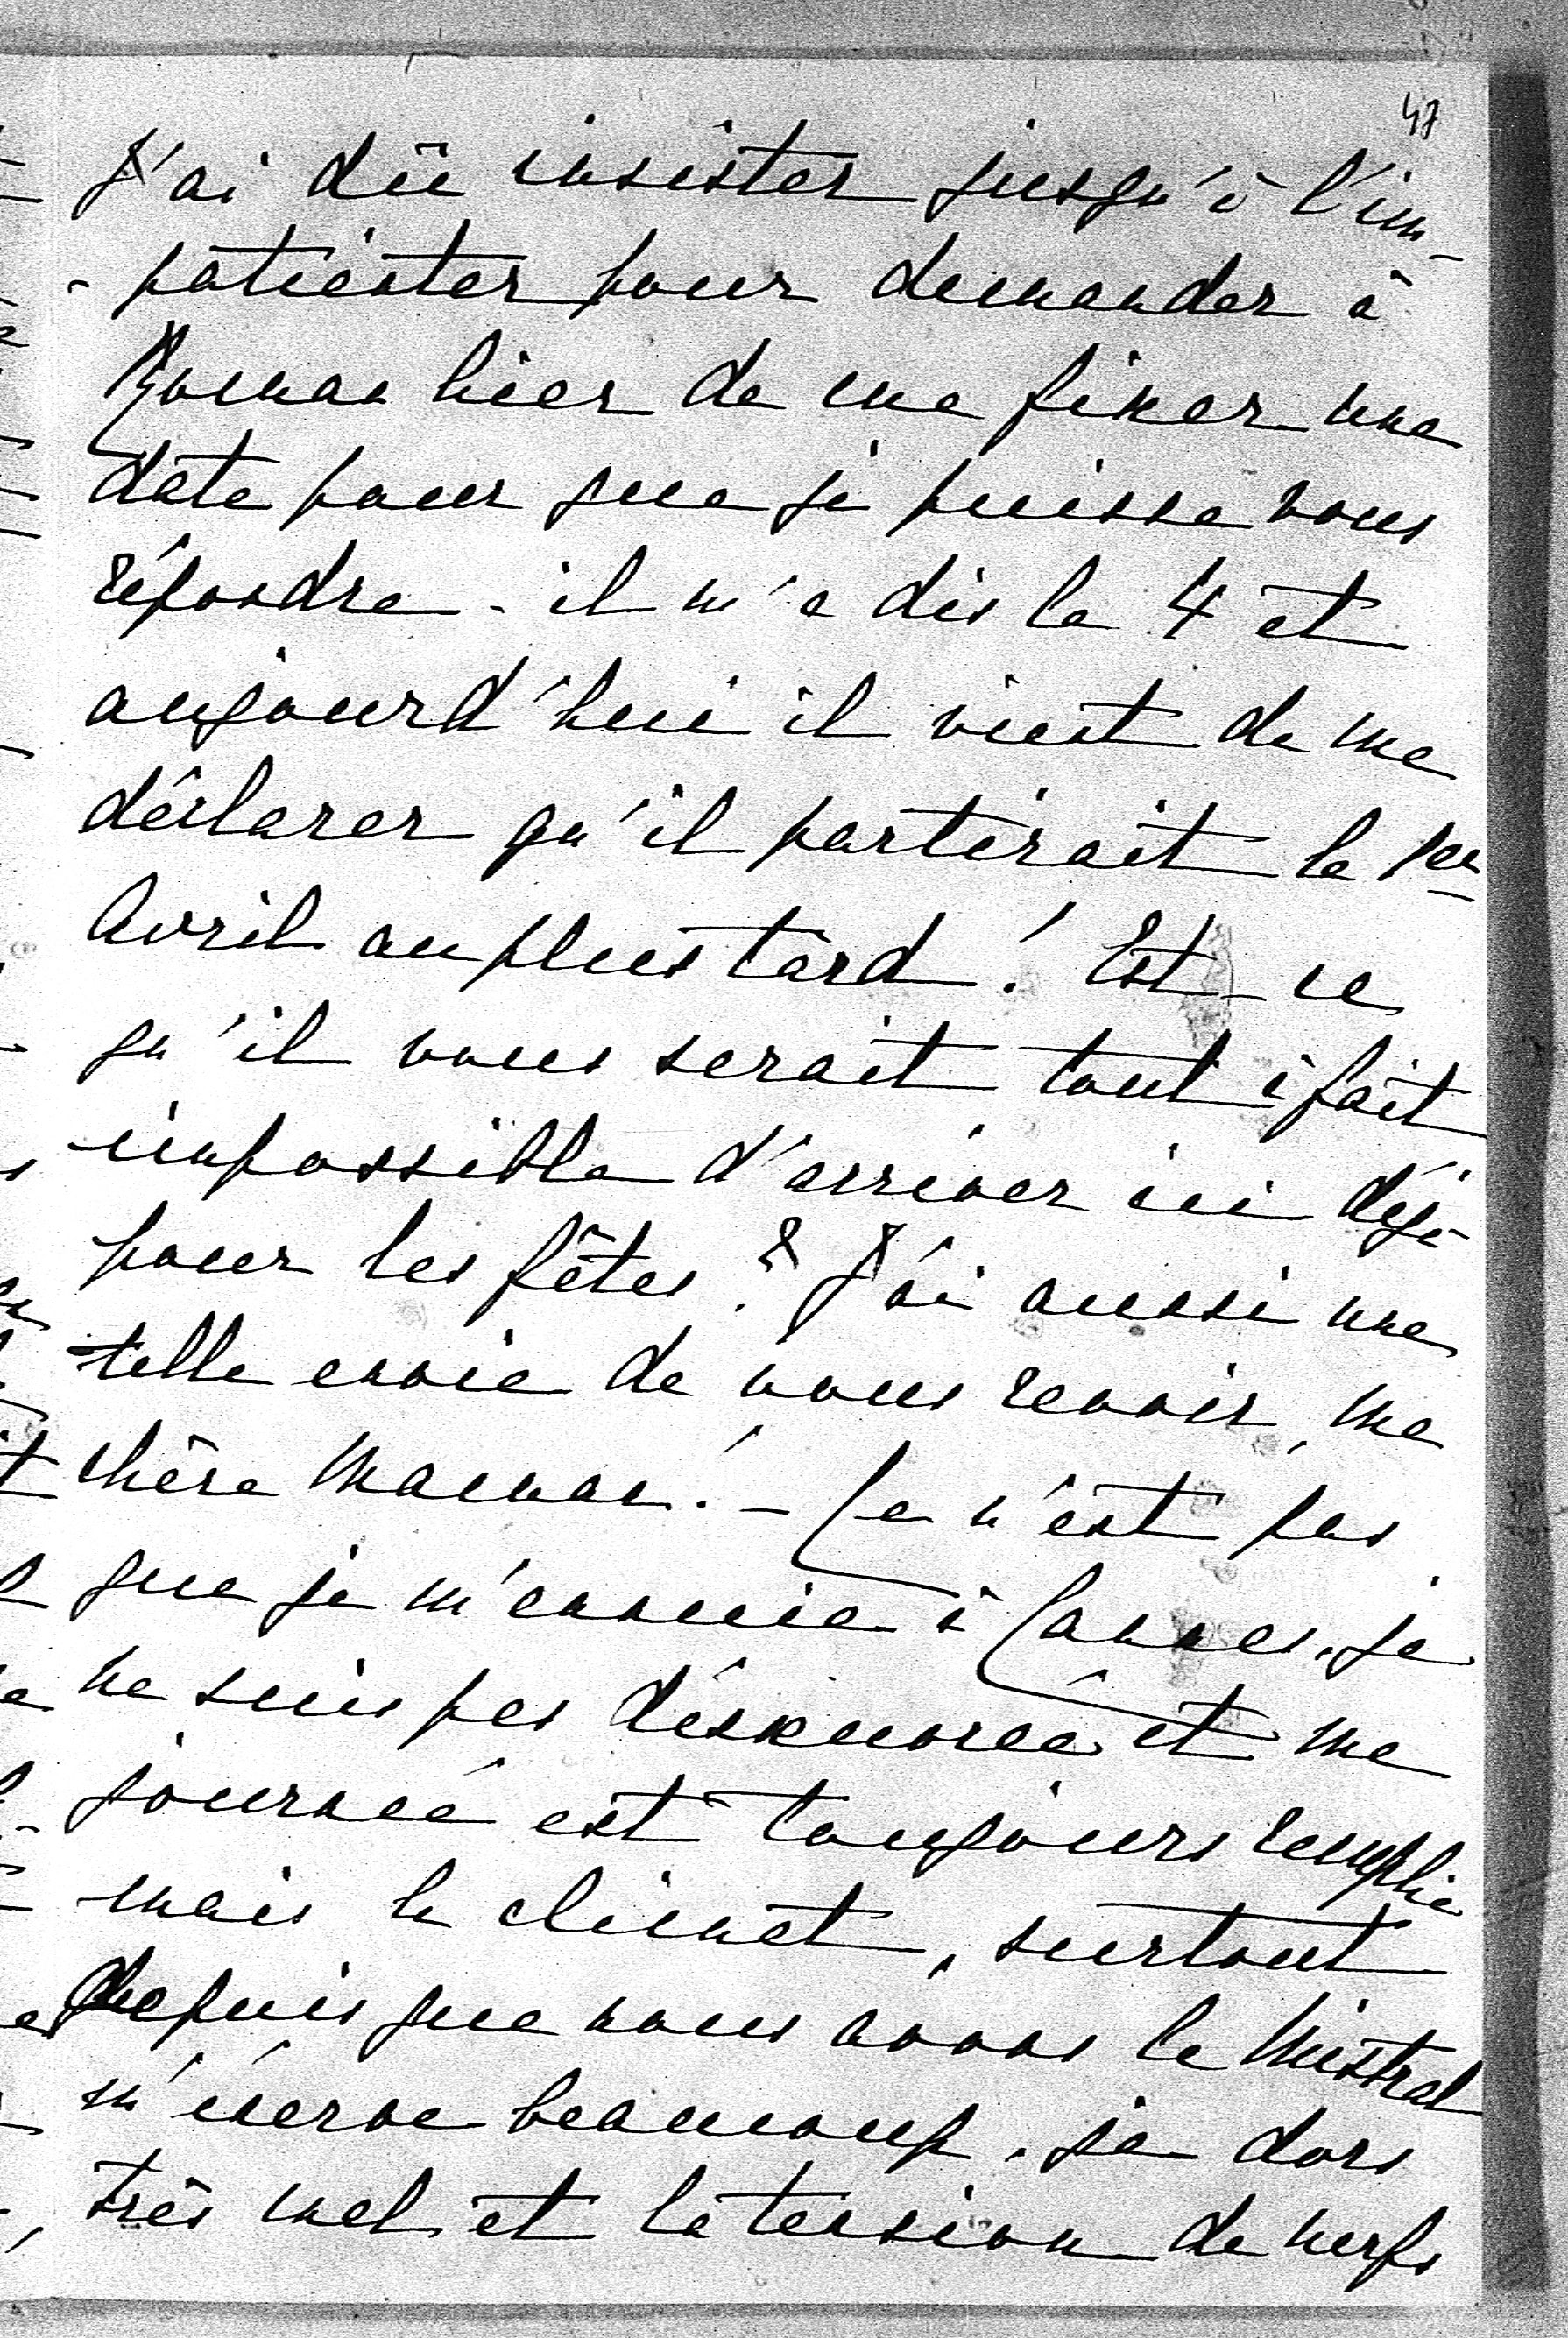 47
J'ai dû insister jusqu'à l'im-
-patienter pour demander à
Roman hier de me fixer une
date pour que je puisse vous
répondre - il m'a dis le 4 et
aujourd'hui il vient de me
déclarer qu'il partirait le 1er
Avril au plus tard! Est-ce
qu'il vous serait tout à fait
impossible d'arriver ici déjà
pour les fêtes? J'ai aussi une
telle envie de vous revoir, ma
chère Maman! - Ce n'est pas
que je m'ennuie à Cannes, je
ne suis pas désœuvrée et ma
journée est toujours remplie
mais le climat, surtout
depuis que nous avons le Mistral
m'énerve beaucoup. je dors
très mal et la tension de nerfs